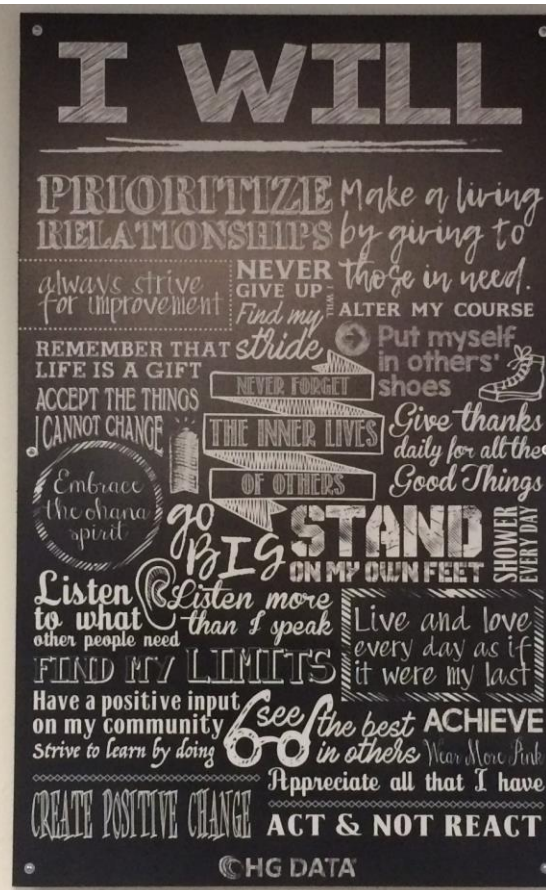 I WILL
PRIORITIZE
RELATIONSHIPS
Make a living
by giving to
those in need.
always strive
for improvement
NEVER
GIVE UP
I WILL
Find my
stride
ALTER MY COURSE
Put myself
in others'
shoes
REMEMBER THAT
LIFE IS A GIFT
NEVER FORGET
THE INNER LIVES
OF OTHERS
ACCEPT THE THINGS
I CANNOT CHANGE
Give thanks
daily for all the
Good Things
Embrace
the ohana
spirit
go
BIG
STAND
ON MY OWN FEET
SHOWER
EVERY DAY
Listen
to what
other people need
Listen more
than I speak
Live and love
every day as if
it were my last
FIND MY LIMITS
Have a positive input
on my community
Strive to learn by doing
see
the best
in others
ACHIEVE
Wear More Pink
Appreciate all that I have
CREATE POSITIVE CHANGE
ACT & NOT REACT
HG DATA